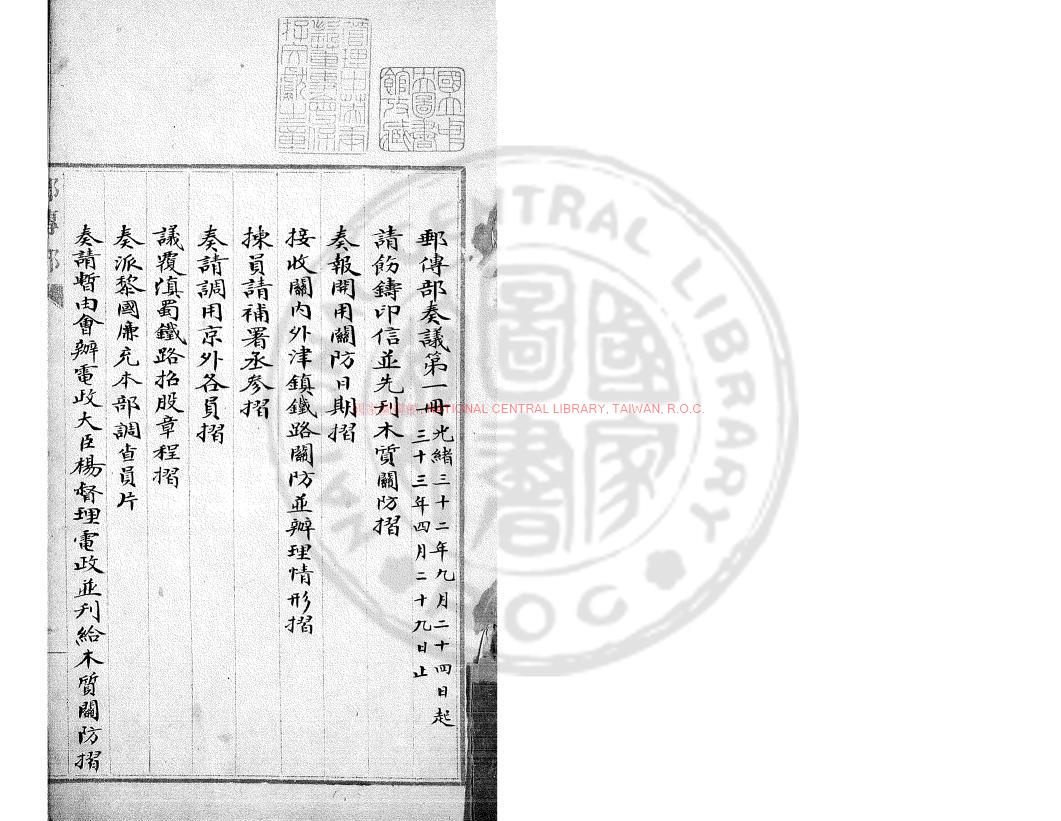 郵傳部奏議第一冊
光緒三十二年九月二十四日起
三十三年四月二十九日止
請飭鑄印信並先刋木質關防摺
奏報開用關防日期摺
接收關內外津鎮鐵路關防並辦理情形摺
揀員請補署丞參摺
奏請調用京外各員摺
議覆滇蜀鐵路招股章程摺
奏派黎國廉充本部調查員片
奏請暫由會辦電政大臣楊督理電政並刋給木質關防摺
郵傳部
管理中英庚款董事會保存文獻之章
國立中央圖書館收藏
國家圖書館
NATIONAL CENTRAL LIBRARY, TAIWAN, R.O.C.
NATIONAL CENTRAL LIBRARY
ROC